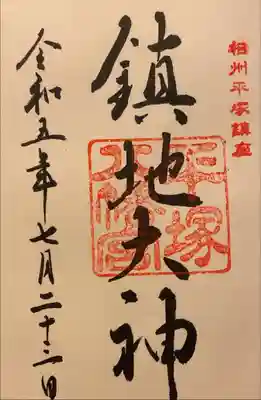 相州平塚鎮座
鎮地大神
平塚八幡宮
令和五年七月二十三日